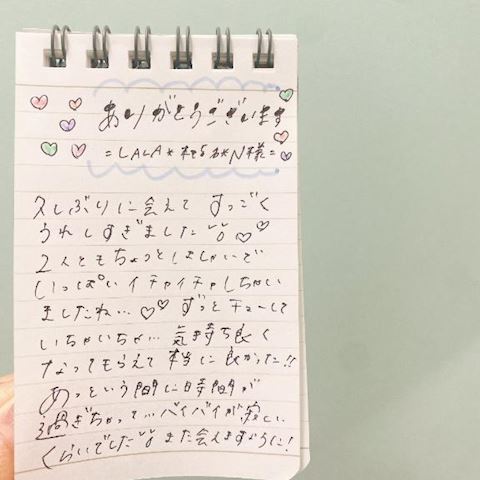 ありがとうございます
=LALA* *N様=
久しぶりに会えて すっごく
うれしすぎました♡♡
2人ともちょっとはしゃいで
いっぱい イチャイチャしちゃい
ましたね…♡♡ ずっとチューして
いちゃいちゃ… 気持ち良く
なってもらえて 本当に良かった!!
あっという間に時間が
過ぎちゃって… バイバイが寂しい
くらいでした また会えますように!